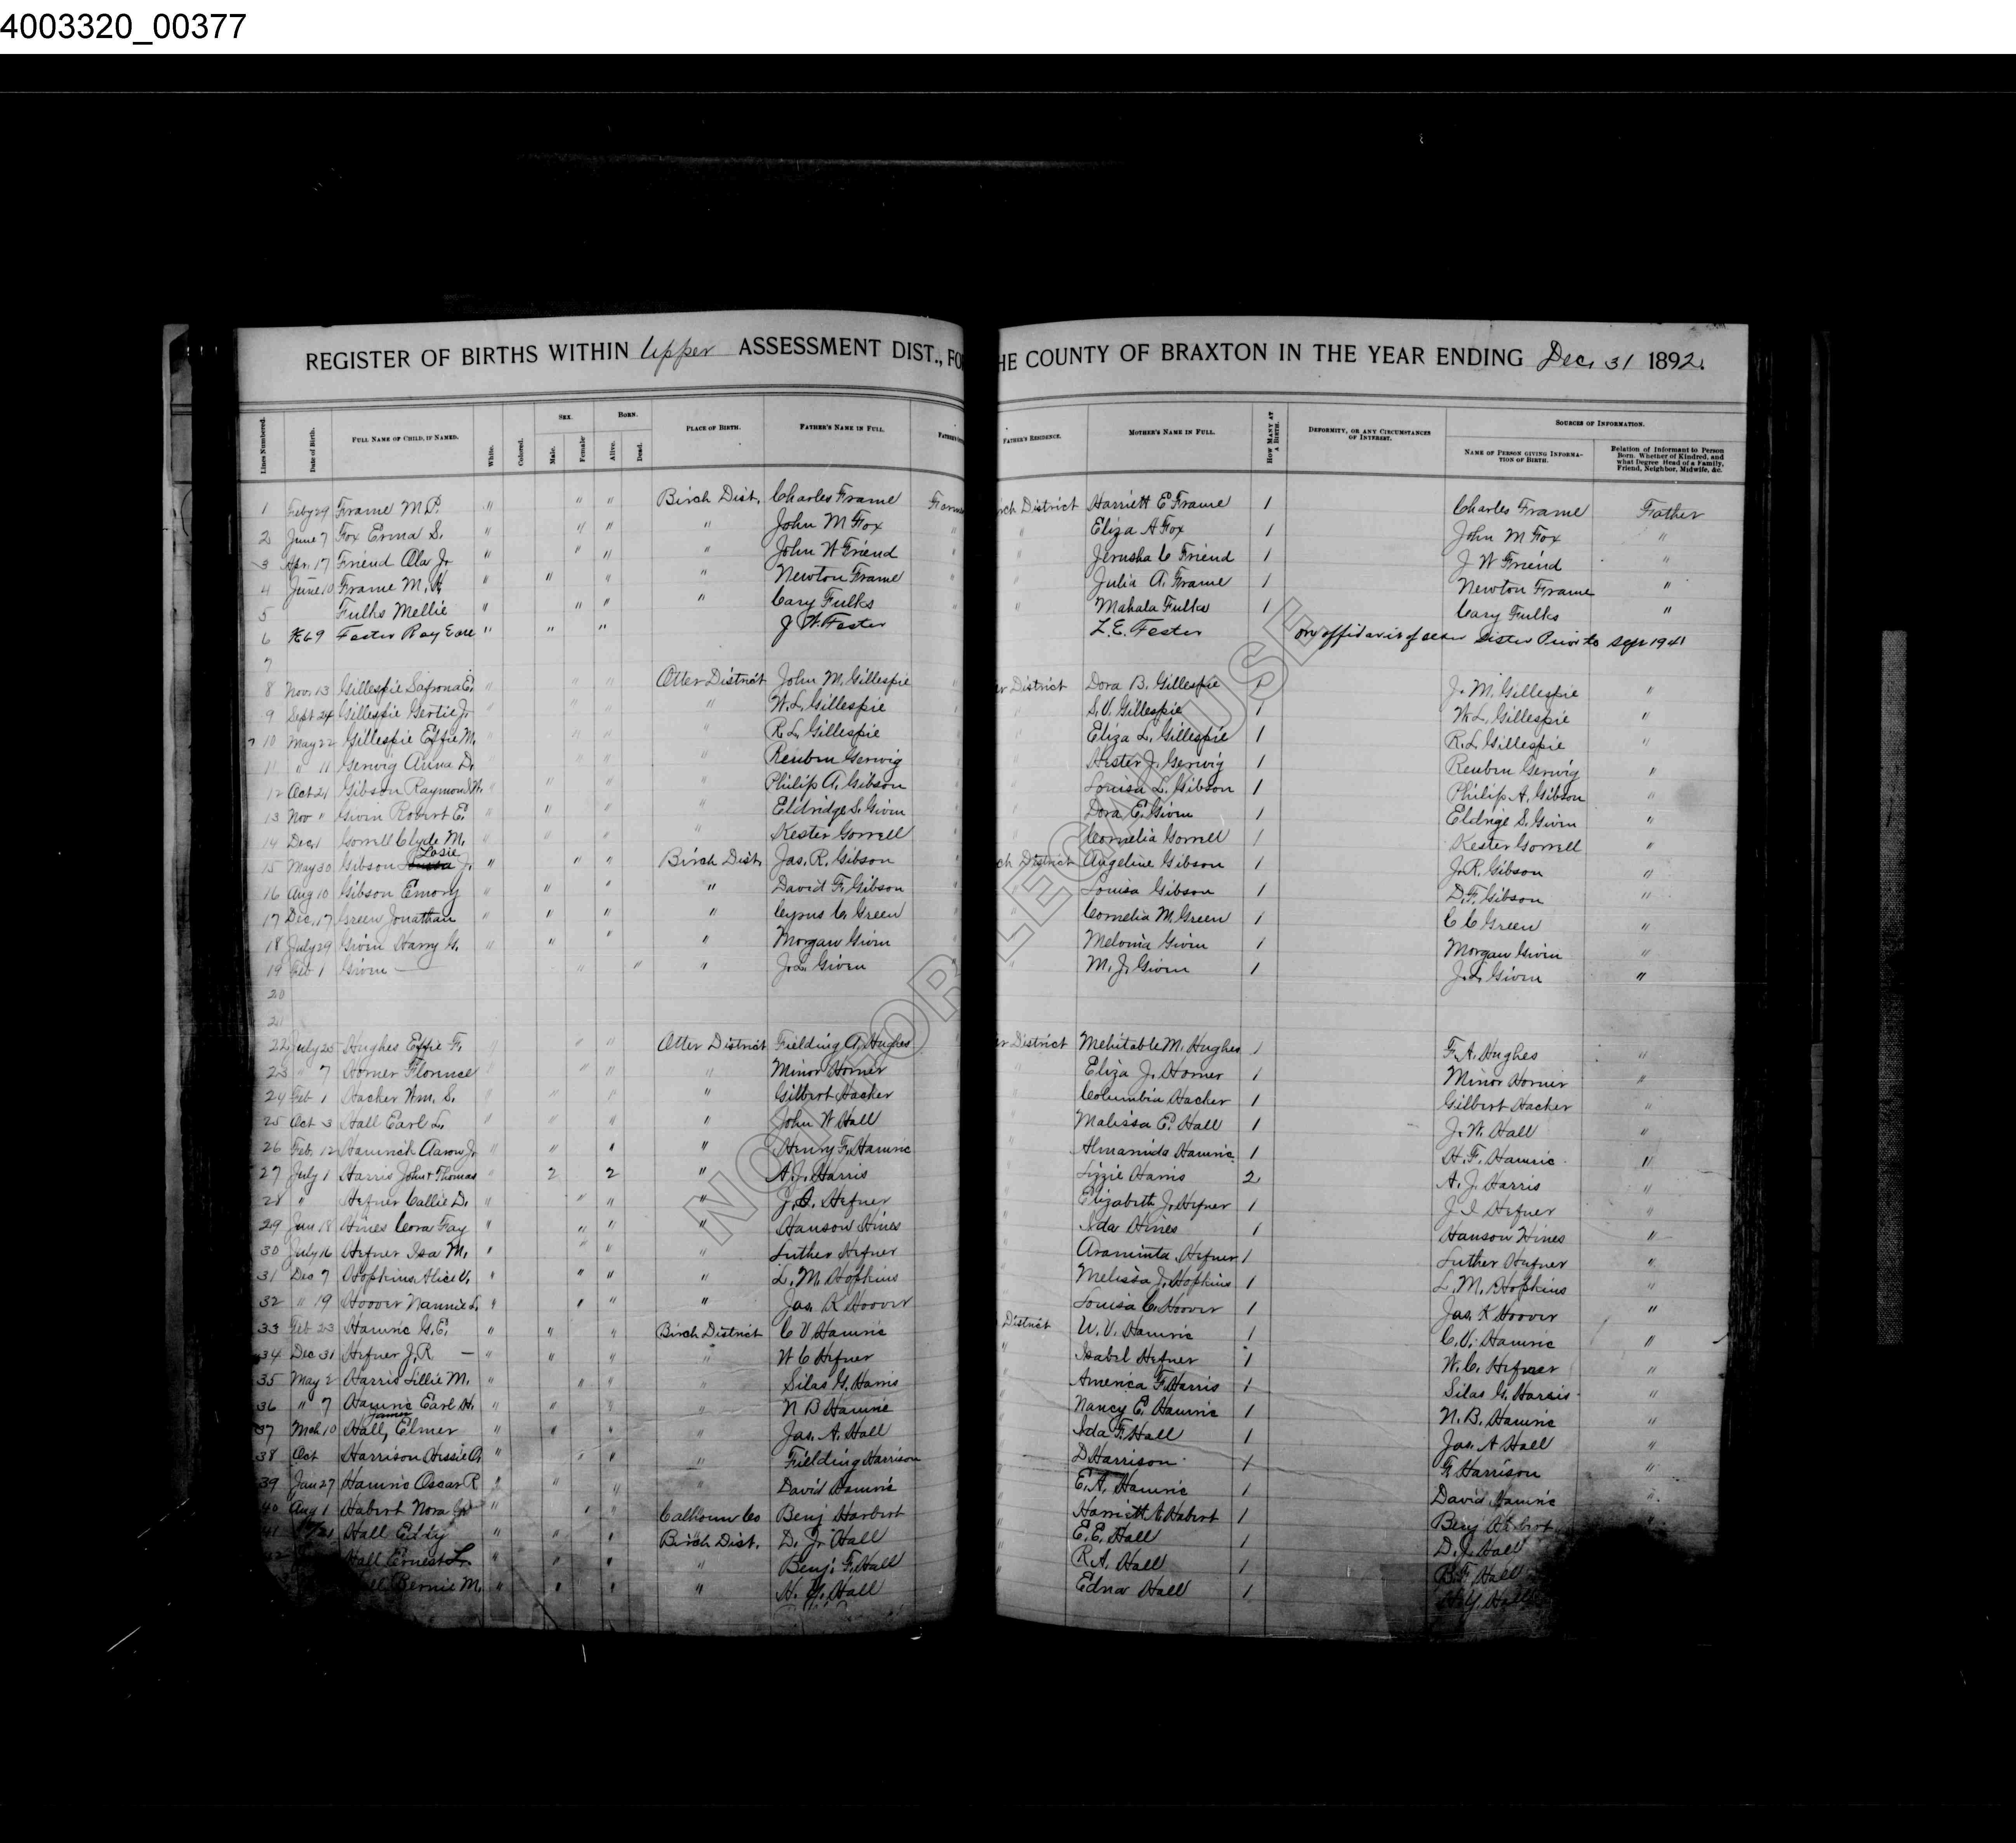 4003320_00377
REGISTER OF BIRTHS WITHIN Upper ASSESSMENT DIST., FO HE COUNTY OF BRAXTON IN THE YEAR ENDING Dec. 31 1892.
Lines Numbered. Date of Birth. FULL NAME OF CHILD, IF NAMED. White. Colored. SEX. Male. Female. BORN. Alive. Dead. PLACE OF BIRTH. FATHER'S NAME IN FULL. FATHER'S RESIDENCE. MOTHER'S NAME IN FULL. HOW MANY AT A BIRTH. DEFORMITY, OR ANY CIRCUMSTANCES OF INTEREST. SOURCES OF INFORMATION. NAME OF PERSON GIVING INFORMATION OF BIRTH. Relation of Informant to Person Born. Whether of Kindred, and what Degree Head of a Family, Friend, Neighbor, Midwife, &c.
1 Feby 29 Frame M.P. " " " Birch Dist. Charles Frame rch District Harriett E Frame 1 Charles Frame Father
2 June 7 Fox Erma S. " " " " John M Fox " Eliza A Fox 1 John M Fox "
3 Apr. 17 Friend Ola Jr " " " " John W Friend " Jerusha C Friend 1 J W Friend "
4 June 10 Frame M. " " " " Newton Frame " Julia A. Frame 1 Newton Frame "
5 Fulks Mellie " " " " Cary Fulks " Mahala Fulks 1 Cary Fulks "
6 Foster Ray " " " J. W. Foster L. E. Foster on affidavit of sister Prior to Sep 1941
7
8 Nov. 13 Gillespie Safrona E. " " " Otter District John M. Gillespie er District Dora B. Gillespie 1 J. M. Gillespie "
9 Sept 24 Gillespie Gertie J. " " " " W. L. Gillespie S. V. Gillespie 1 W. L. Gillespie "
10 May 22 Gillespie Effie M. " " " " R. L. Gillespie Eliza L. Gillespie 1 R. L. Gillespie "
11 " 11 Gerwig Anna D. " " " " Reuben Gerwig Hester J. Gerwig 1 Reuben Gerwig "
12 Oct 21 Gibson Raymond W. " " " " Philip A. Gibson Louisa L. Gibson 1 Philip A. Gibson "
13 Nov " Givin Robert E. " " " " Eldridge S. Givin Dora E. Givin 1 Eldrige S. Givin "
14 Dec. 1 Gorrell Clyde M. " " " " Kester Gorrell Cornelia Gorrell 1 Kester Gorrell "
15 May 30 Gibson Losie J. " " " Birch Dist. Jas. R. Gibson ch District Angeline Gibson 1 J. R. Gibson "
16 Aug 10 Gibson Emory " " " " David F. Gibson Louisa Gibson 1 D. F. Gibson "
17 Dec. 17 Green Jonathan " " " " Cyrus C. Green Cornelia M. Green 1 C C Green "
18 July 29 Givin Harry G. " " " " Morgan Givin Melvina Givin 1 Morgan Givin "
19 Feb 1 Givin — " " " J. L. Givin M. J. Givin 1 J. L. Givin "
20
21
22 July 25 Hughes Effie F. " " " Otter District Fielding A. Hughes er District Mehitable M. Hughes 1 F. A. Hughes "
23 " 7 Horner Florence " " " Minor Horner Eliza J. Horner 1 Minor Horner "
24 Feb 1 Hacker Wm. S. " " " " Gilbert Hacker Columbia Hacker 1 Gilbert Hacker "
25 Oct 3 Hall Earl L. " " " " John W Hall Malissa E. Hall 1 J. W. Hall "
26 Feb. 12 Hamrick Aaron J. " " " " Henry F. Hamric Almarinda Hamric 1 H. F. Hamric "
27 July 1 Harris John + Thomas " 2 2 " A. J. Harris Lizzie Harris 2 A. J. Harris "
28 " Hefner Callie D. " " " " J. I. Hefner Elizabeth J. Hefner 1 J I Hefner "
29 Jan 18 Hines Cora Fay " " " " Hanson Hines Ida Hines 1 Hanson Hines "
30 July 16 Hefner Isa M. " " " " Luther Hefner Araminta Hefner 1 Luther Hefner "
31 Dec 7 Hopkins Alice V. " " " " L. M. Hopkins Melissa J. Hopkins 1 L. M. Hopkins "
32 " 19 Hoover Nannie L. " " " " Jas. K Hoover Louisa C. Hoover 1 Jas. K Hoover "
33 Feb 23 Hamric G. E. " " " Birch District C V Hamric District W. V. Hamric 1 C. V. Hamric "
34 Dec 31 Hefner J. R. — " " " " W C Hefner Isabel Hefner 1 W. C. Hefner "
35 May 2 Harris Lillie M. " " " " Silas G. Harris America F. Harris 1 Silas G. Harris "
36 " 7 Hamric Earl H. " " " " N B Hamric Nancy E. Hamric 1 N. B. Hamric "
37 Mch 10 Hall, James Elmer " " " " Jas. A. Hall Ida F. Hall 1 Jas. A Hall "
38 Oct Harrison Hissie A. " " " " Fielding Harrison D Harrison 1 F. Harrison "
39 Jan 27 Hamric Oscar R " " " " David Hamric E. A. Hamric 1 David Hamric "
40 Aug 1 Habert Nora " " " Calhoun Co Benj Harbert Harriett Habert 1 Benj Harbert
41 Hall Eddy " " " Birch Dist. D. J. Hall E. E. Hall 1 D. J. Hall
42 Hall Ernest " " " " Benj. F. Hall R. A. Hall 1 B. F. Hall
Bernie M. " " " " H. Y. Hall Edna Hall 1 H. Y. Hall
NOT FOR LEGAL USE